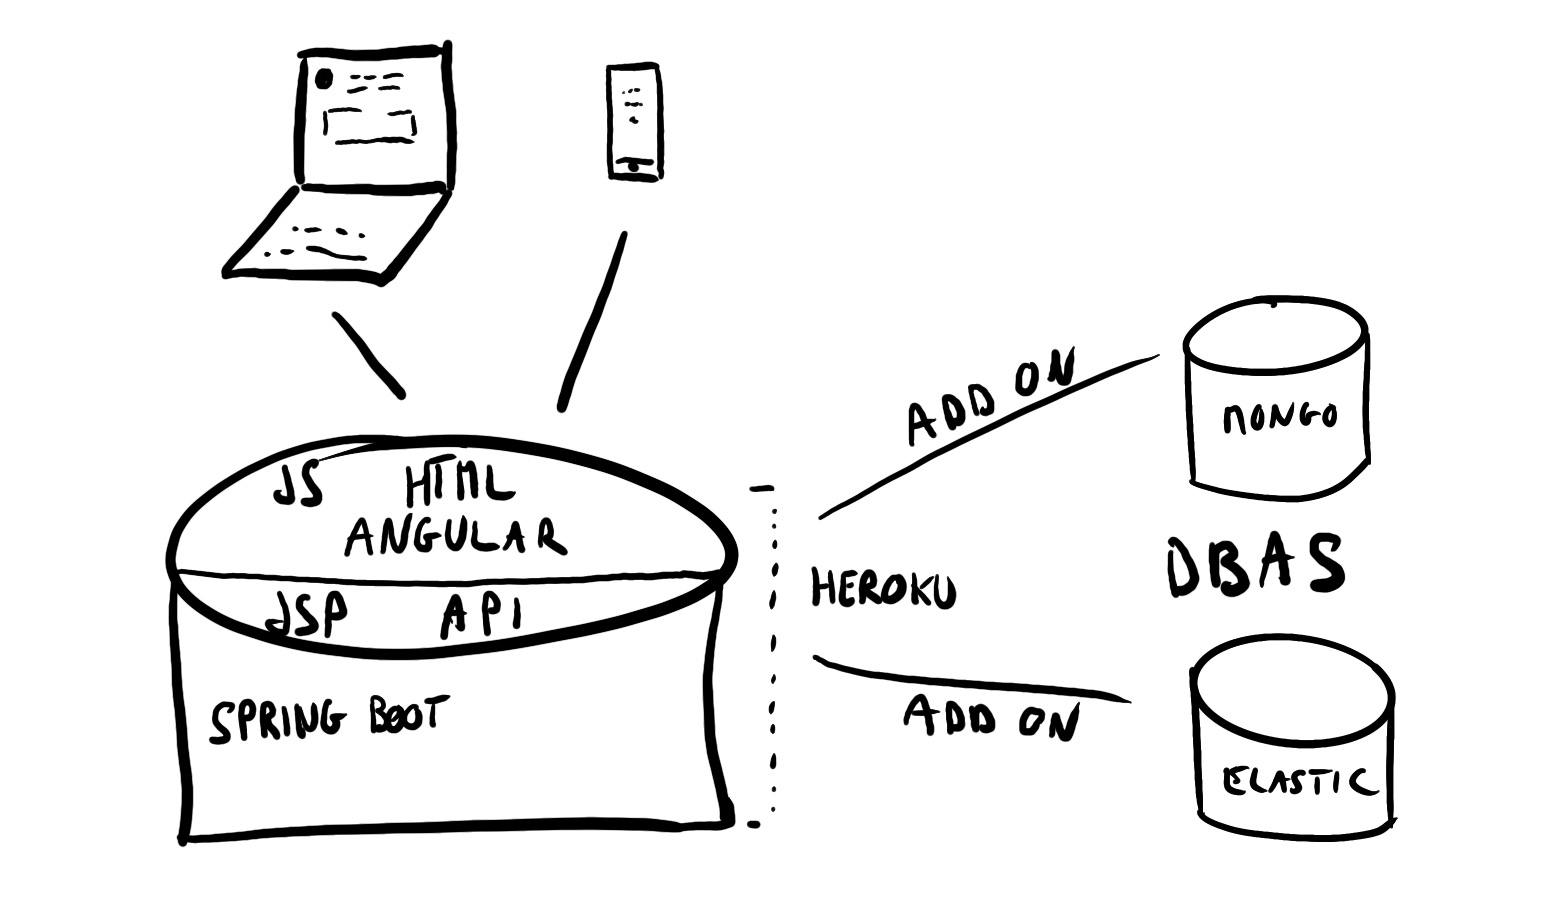 JS HTML
ANGULAR
JSP API
SPRING BOOT
HEROKU
ADD ON
ADD ON
MONGO
DBAS
ELASTIC